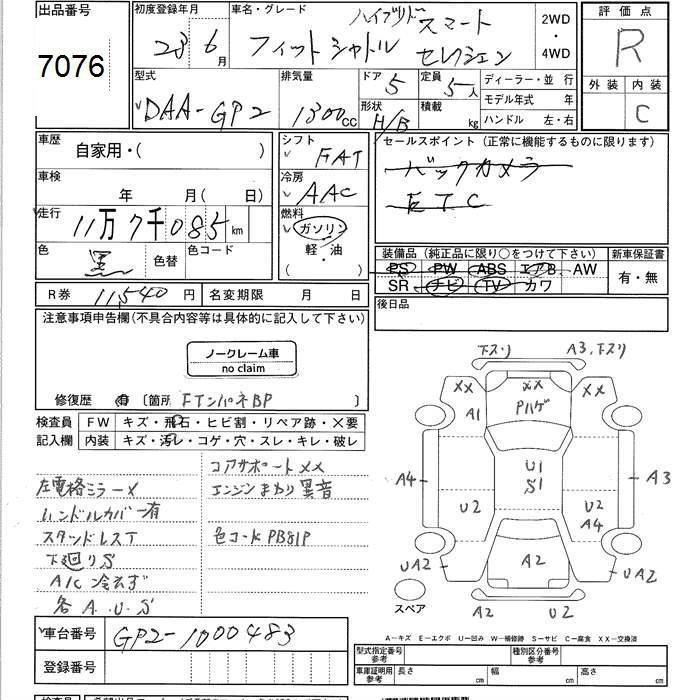 出品番号 初度登録年月 車名・グレード ハイブリッド スマート 2WD 評価点
7076 23 6月 フィットシャトル セレクション ・ 4WD R
型式 排気量 ドア 5 定員 5人 ディーラー・並行 外装 内装
DAA-GP2 1300cc 形状 H/B 積載 kg モデル年式 年 C
ハンドル 左・右
車歴 自家用・( ) シフト FAT セールスポイント (正常に機能するものに限ります)
バックカメラ
車検 年 月(日) 冷房 AAC ETC
走行 11万7千085km 燃料 ガソリン
軽・油
( )
色 黒 色替 色コード 装備品 (純正品に限り○をつけて下さい) 新車保証書
PS PW ABS エアB AW 有・無
R券 11,540円 名変期限 月 日 SR ナビ TV カワ
注意事項申告欄(不具合内容等は具体的に記入して下さい) 後日品
ノークレーム車
no claim
修復歴 有 [箇所 FインパネBP
検査員 FW キズ・飛石・ヒビ割・リペア跡・×要
記入欄 内装 キズ・汚レ・コゲ・穴・スレ・キレ・破レ
コアサポートXX
左電格ミラー× エンジンまわり異音
ハンドルカバー有
スタッドレスT 色コードPB81P
下廻りS
A/C冷えず
各A.U.S
下スリ A3,下スリ
XX XX XX
A1 Pハゲ
U1
S1
A4 A3
U2 U2
A4
UA2 A2 UA2
スペア A2 U2
A-キズ E-エクボ U-凹み W-補修跡 S-サビ C-腐食 XX-交換済
車台番号 GP2-1000483
登録番号
型式指定番号 参考 種別区分番号 参考
車庫証明用 参考 長さ cm 幅 cm 高さ cm